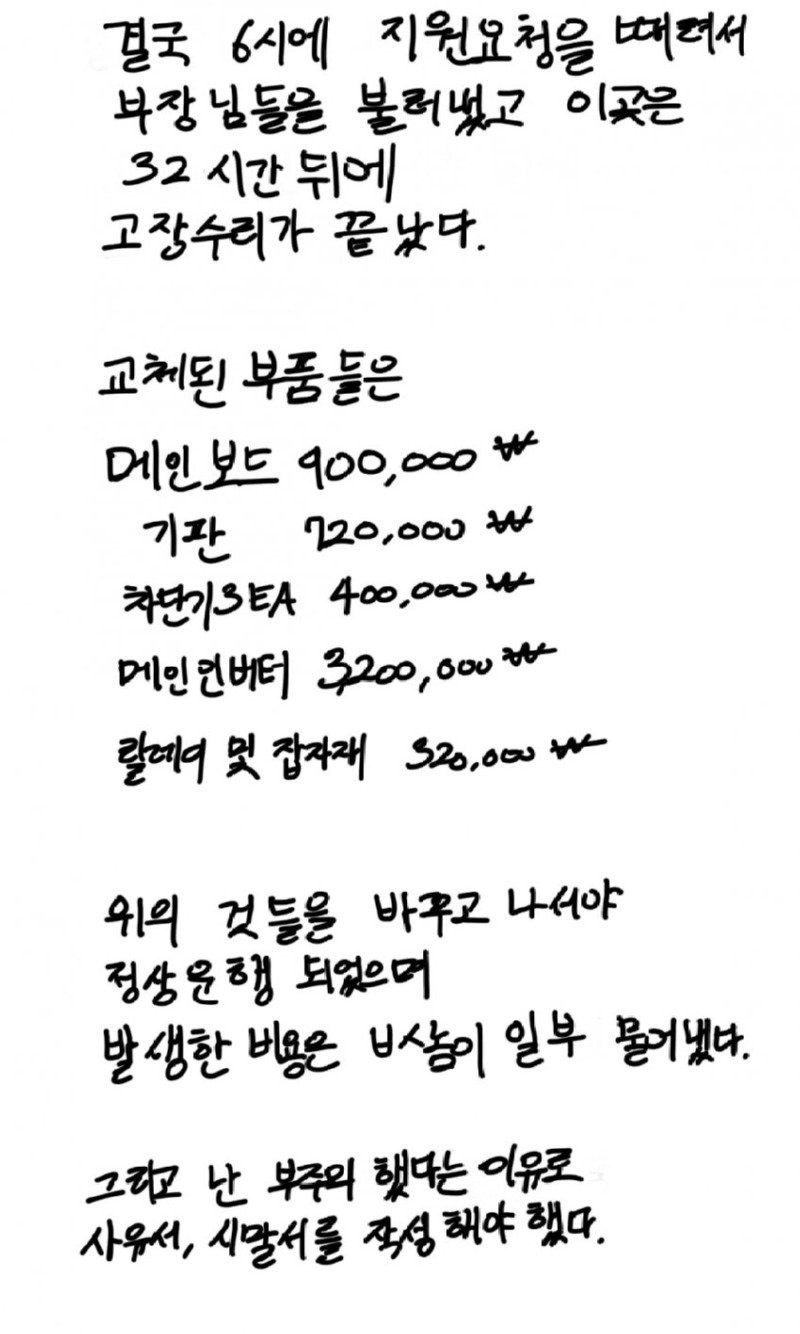 결국 6시에 지원요청을 때려서
부장님들을 불러냈고 이곳은
32시간 뒤에
고장수리가 끝났다.
교체된 부품들은
메인보드 900,000₩
기판 720,000₩
차단기3EA 400,000₩
메인인버터 3,200,000₩
릴레이 및 잡자재 320,000₩
위의 것들을 바꾸고 나서야
정상운행 되었으며
발생한 비용은 ㅂㅅ놈이 일부 물어냈다.
그리고 난 부주의 했다는 이유로
사유서, 시말서를 작성해야했다.